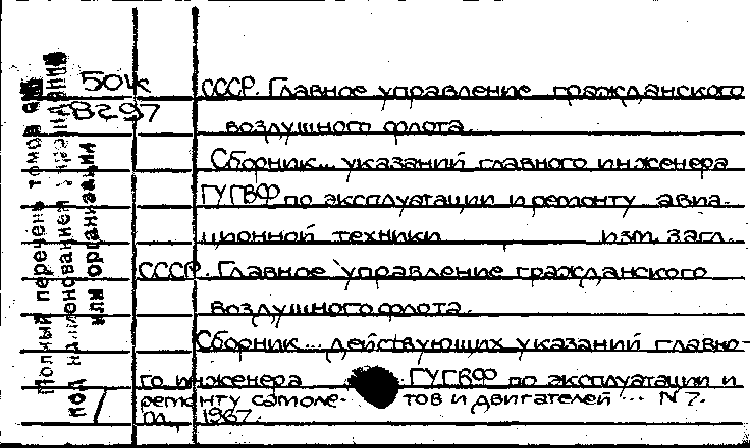 50к
В297
СССР. Главное управление гражданского
воздушного флота.
Сборник... указаний главного инженера
ГУГВФ по эксплуатации и ремонту авиа-
ционной техники изм. загл.
СССР. Главное управление гражданского
воздушного флота.
Сборник... действующих указаний главно-
го инженера ГУГВФ по эксплуатации и
ремонту самоле- тов и двигателей ... N 7.
М., 1967.
Полный перечень томов см.
под наименованием учреждения
или организации